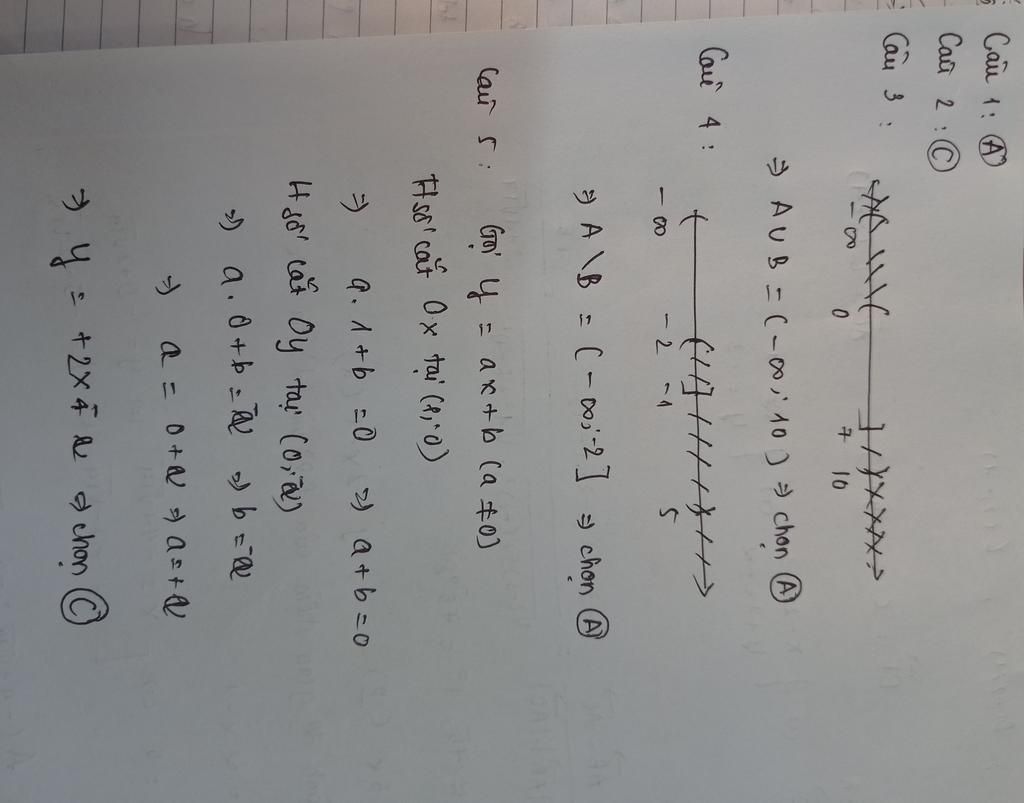 Câu 1: A
Câu 2: C
Câu 3:
-∞ 0 7 10
⇒ A ∪ B = (-∞; 10) ⇒ chọn A
Câu 4:
-∞ -2 -1 5
⇒ A \ B = (-∞; -2] ⇒ chọn A
Câu 5: Gọi y = ax + b (a ≠ 0)
H số cắt Ox tại (1; 0)
⇒ a.1 + b = 0 ⇒ a + b = 0
H số cắt Oy tại (0; -2)
⇒ a.0 + b = -2 ⇒ b = -2
⇒ a = 0 + 2 ⇒ a = +2
⇒ y = +2x - 2 ⇒ chọn C